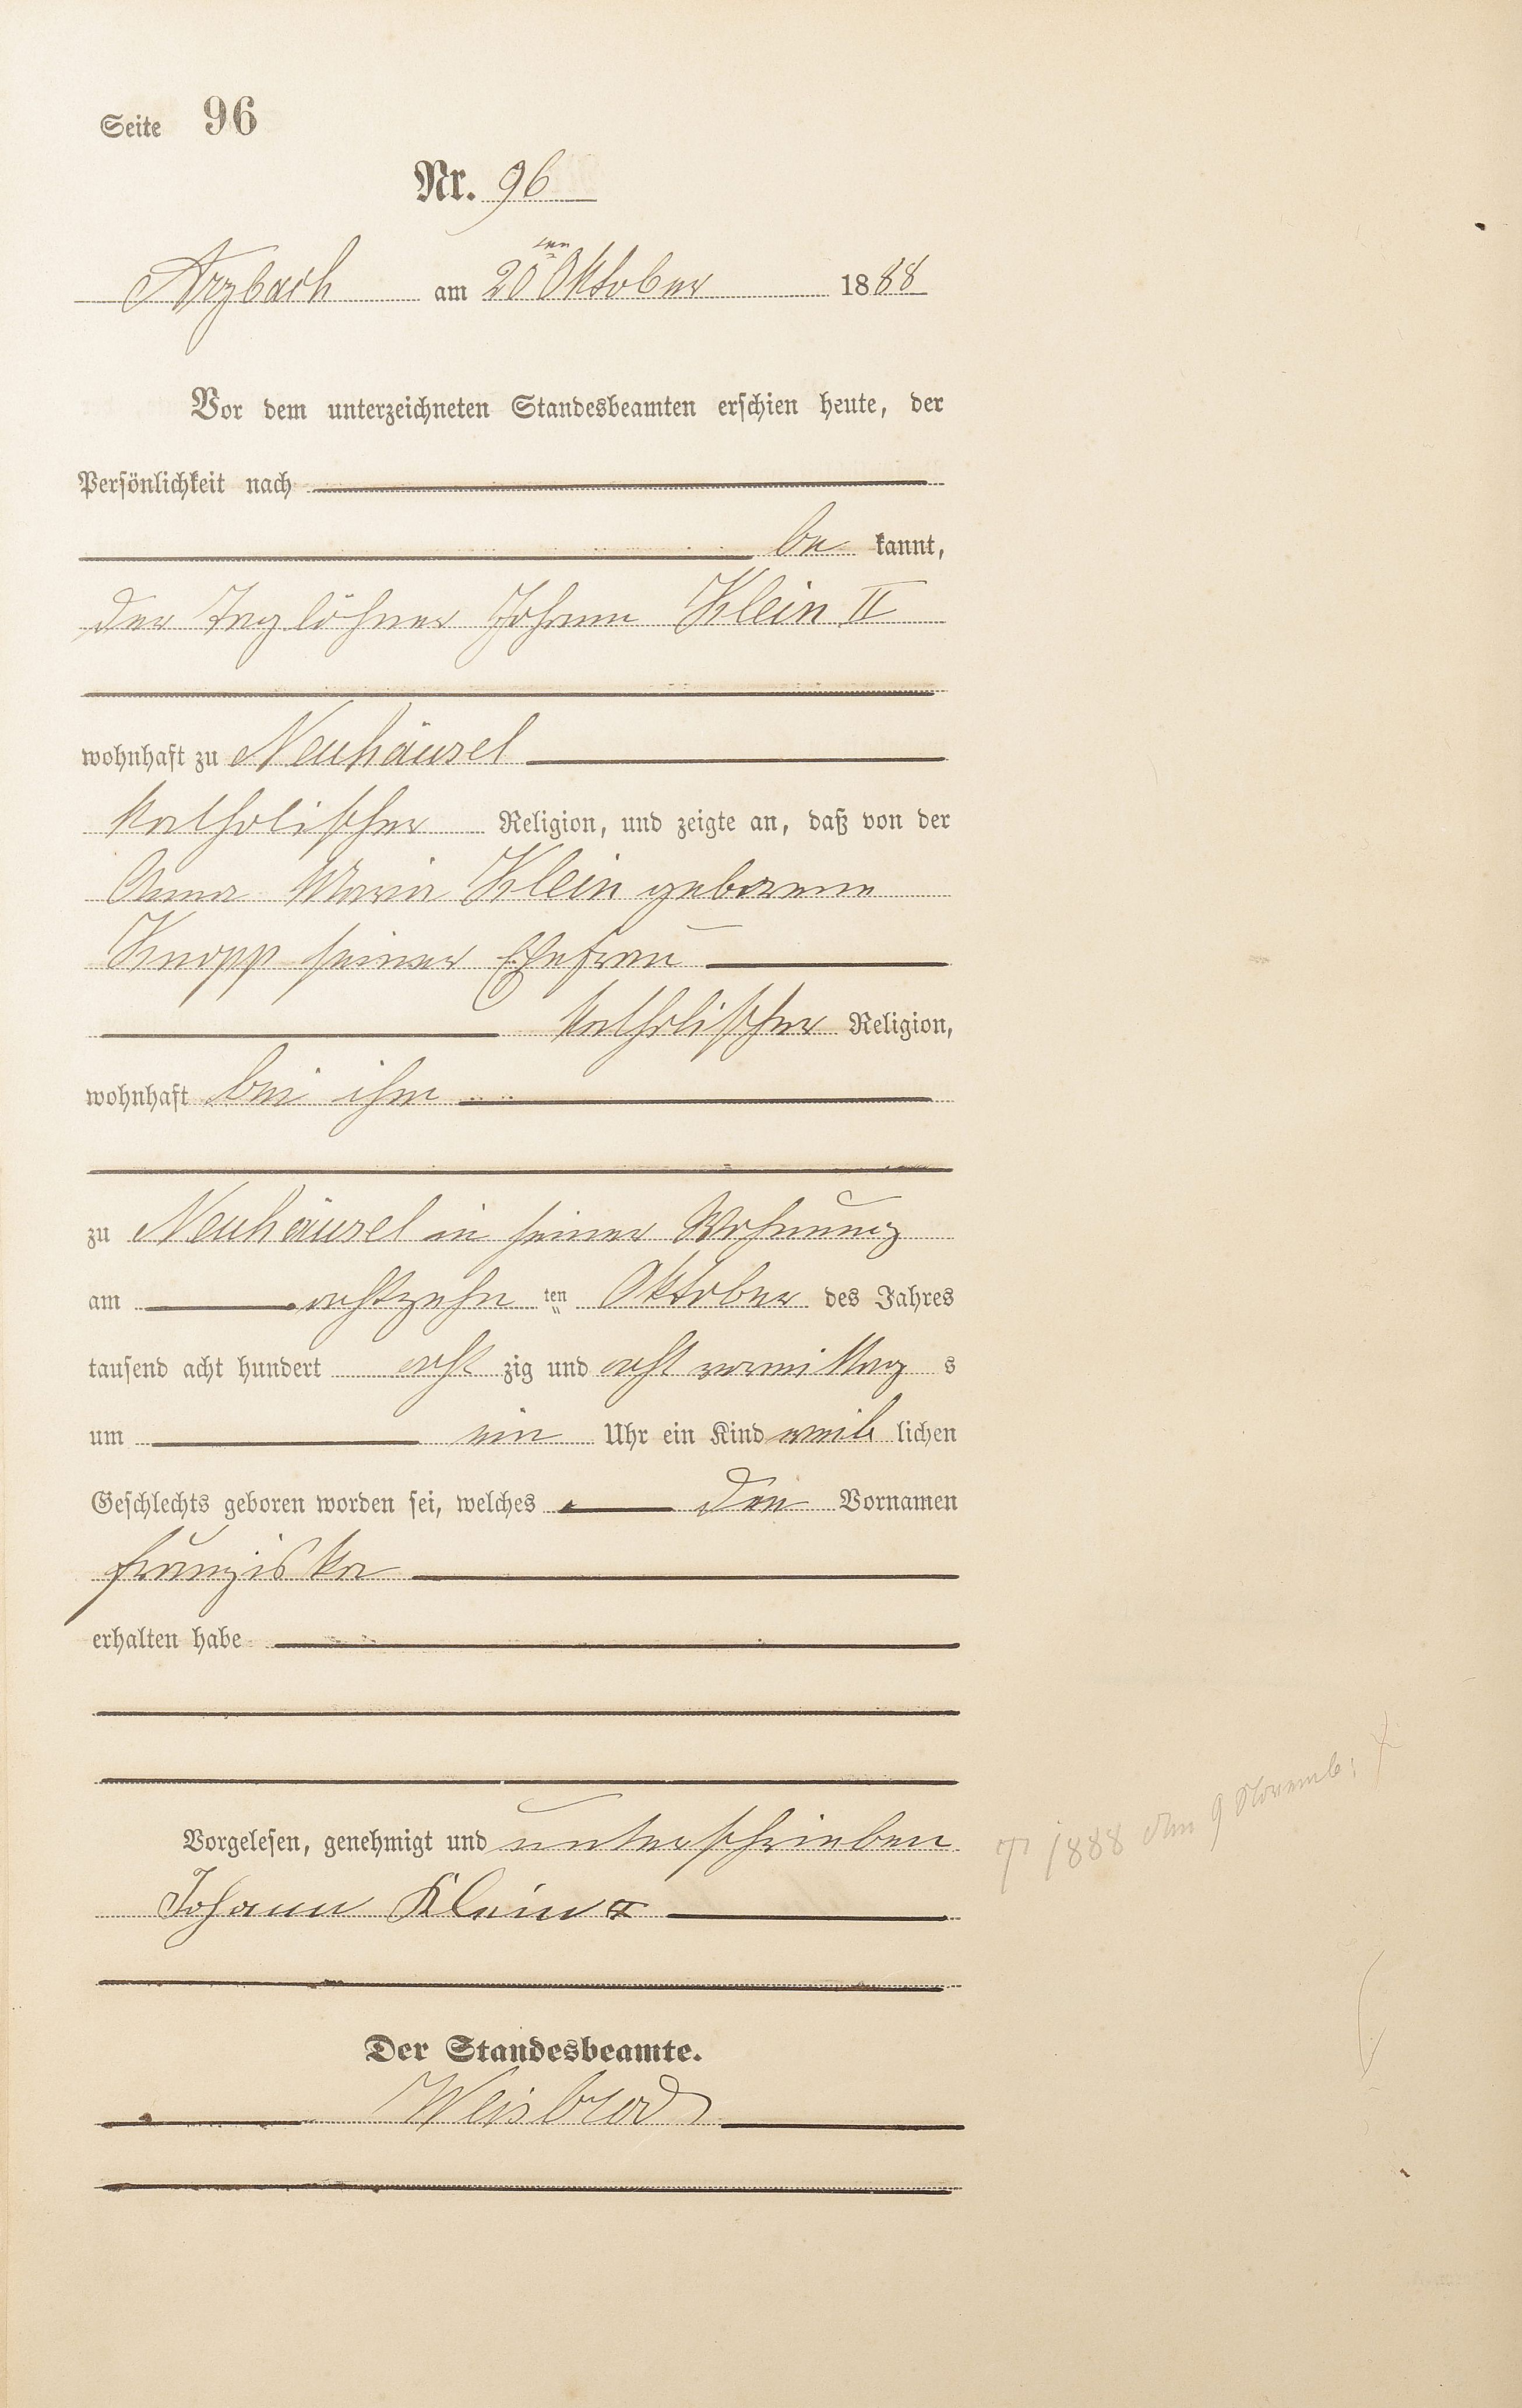 Seite 96
Nr. 96
Arzbach am 20ten Oktober 1888
Vor dem unterzeichneten Standesbeamten erschien heute, der
Persönlichkeit nach
be kannt,
der Taglöhner Johann Klein II
wohnhaft zu Neuhäusel
katholischer Religion, und zeigte an, daß von der
Anna Maria Klein geborene
Knopp seiner Ehefrau
katholischer Religion,
wohnhaft bei ihm
zu Neuhäusel in seiner Wohnung
am achtzehn ten Oktober des Jahres
tausend acht hundert acht zig und acht vormittag s
um ein Uhr ein Kind weib lichen
Geschlechts geboren worden sei, welches den Vornamen
Franziska
erhalten habe
Vorgelesen, genehmigt und unterschrieben
Johann Klein II
1888 den 9 Novemb:
Der Standesbeamte.
Weisbrod